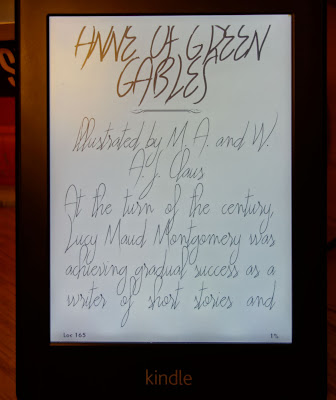 ANNE OF GREEN
GABLES
Illustrated by M. A. and W.
A. J. Claus
At the turn of the century,
Lucy Maud Montgomery was
achieving gradual success as a
writer of short stories and
Loc 165 1%
kindle